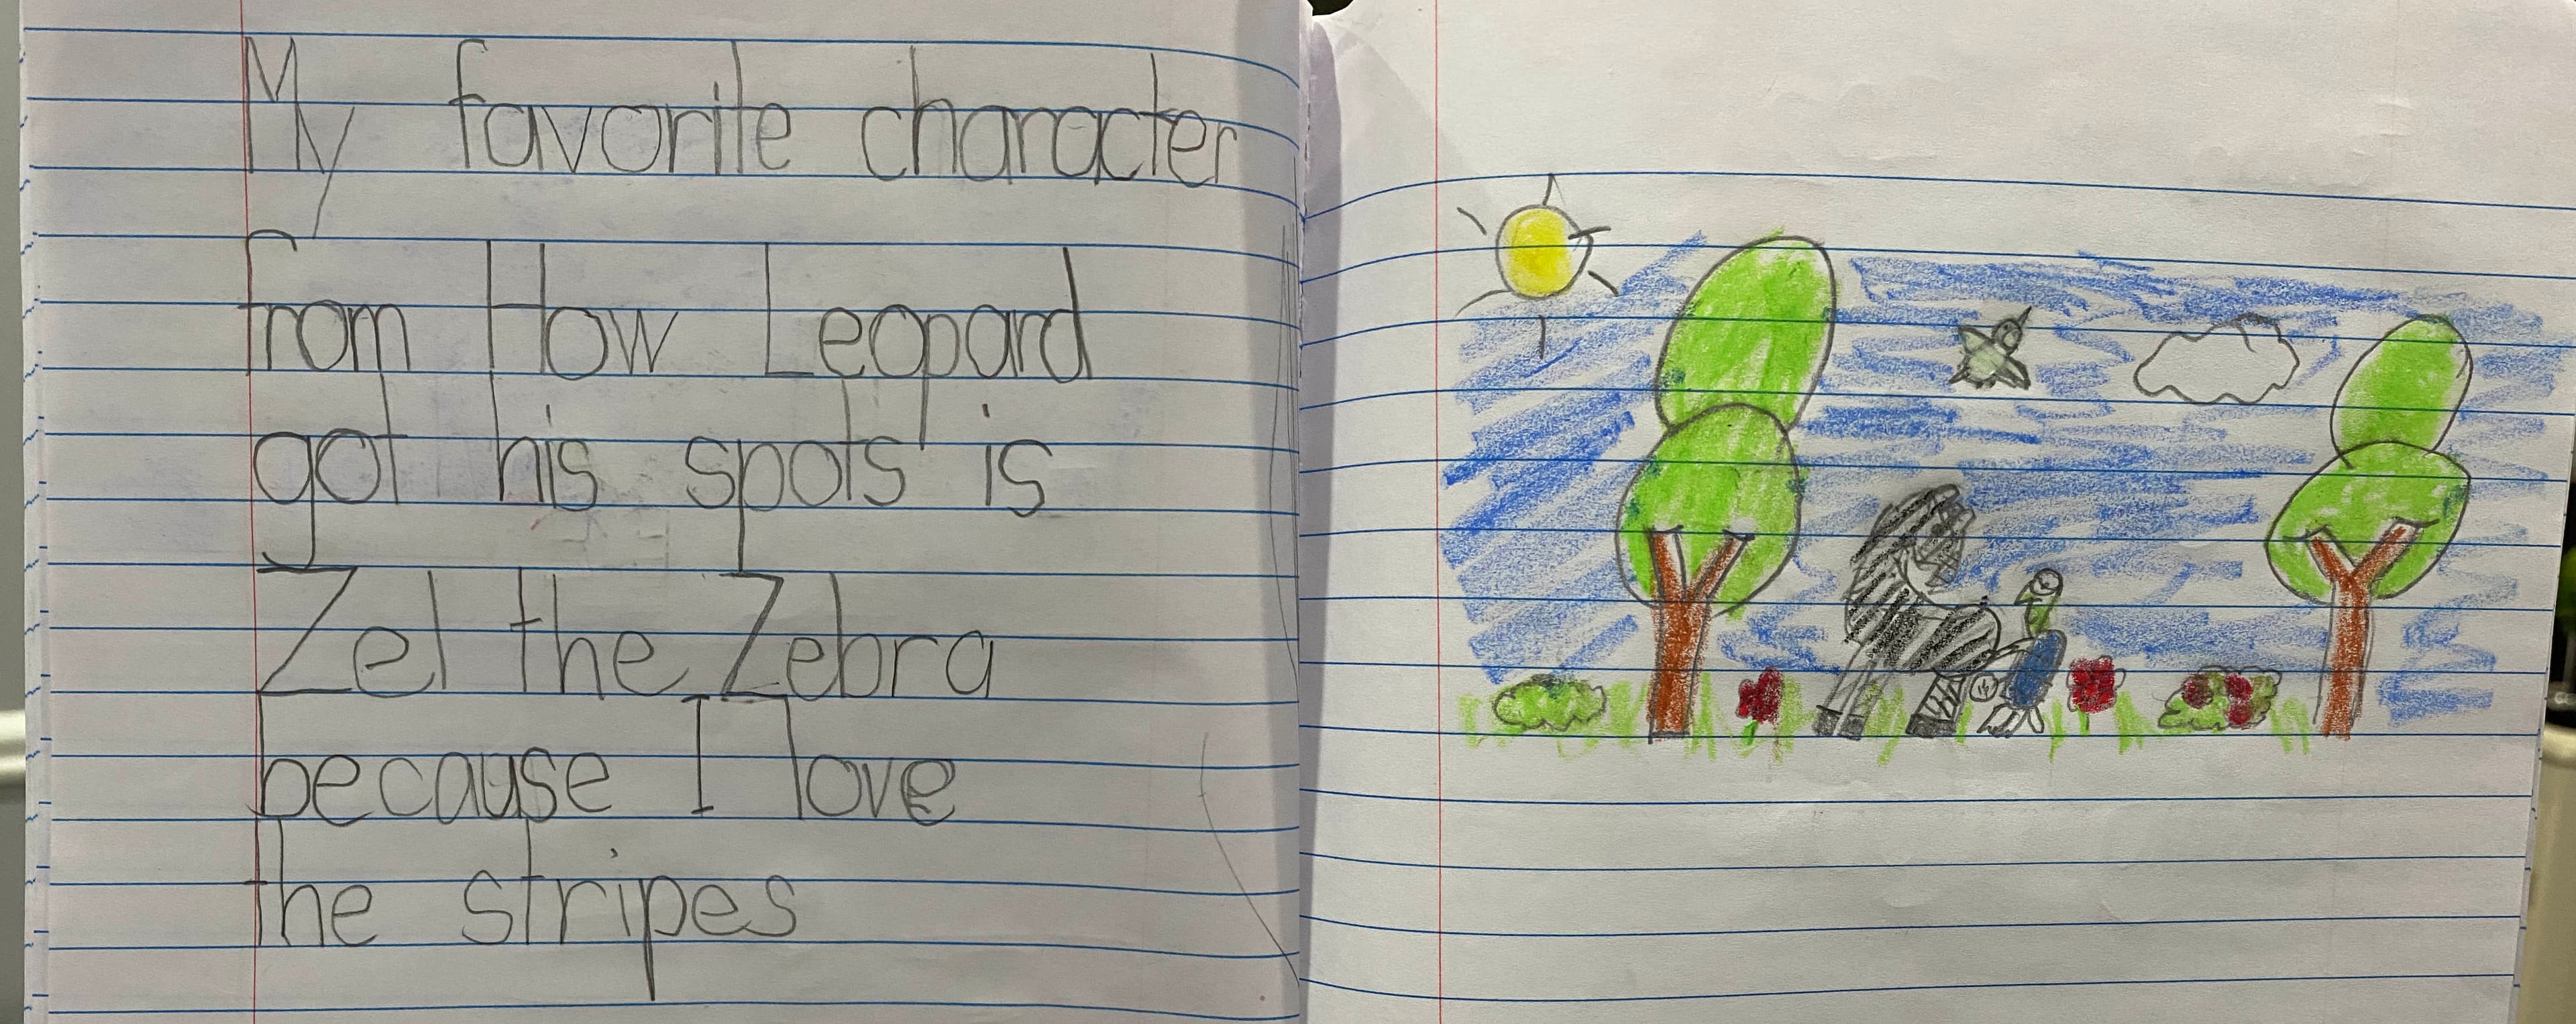 My favorite character
from How Leopard
got his spots is
Zel the Zebra
because I love
the stripes